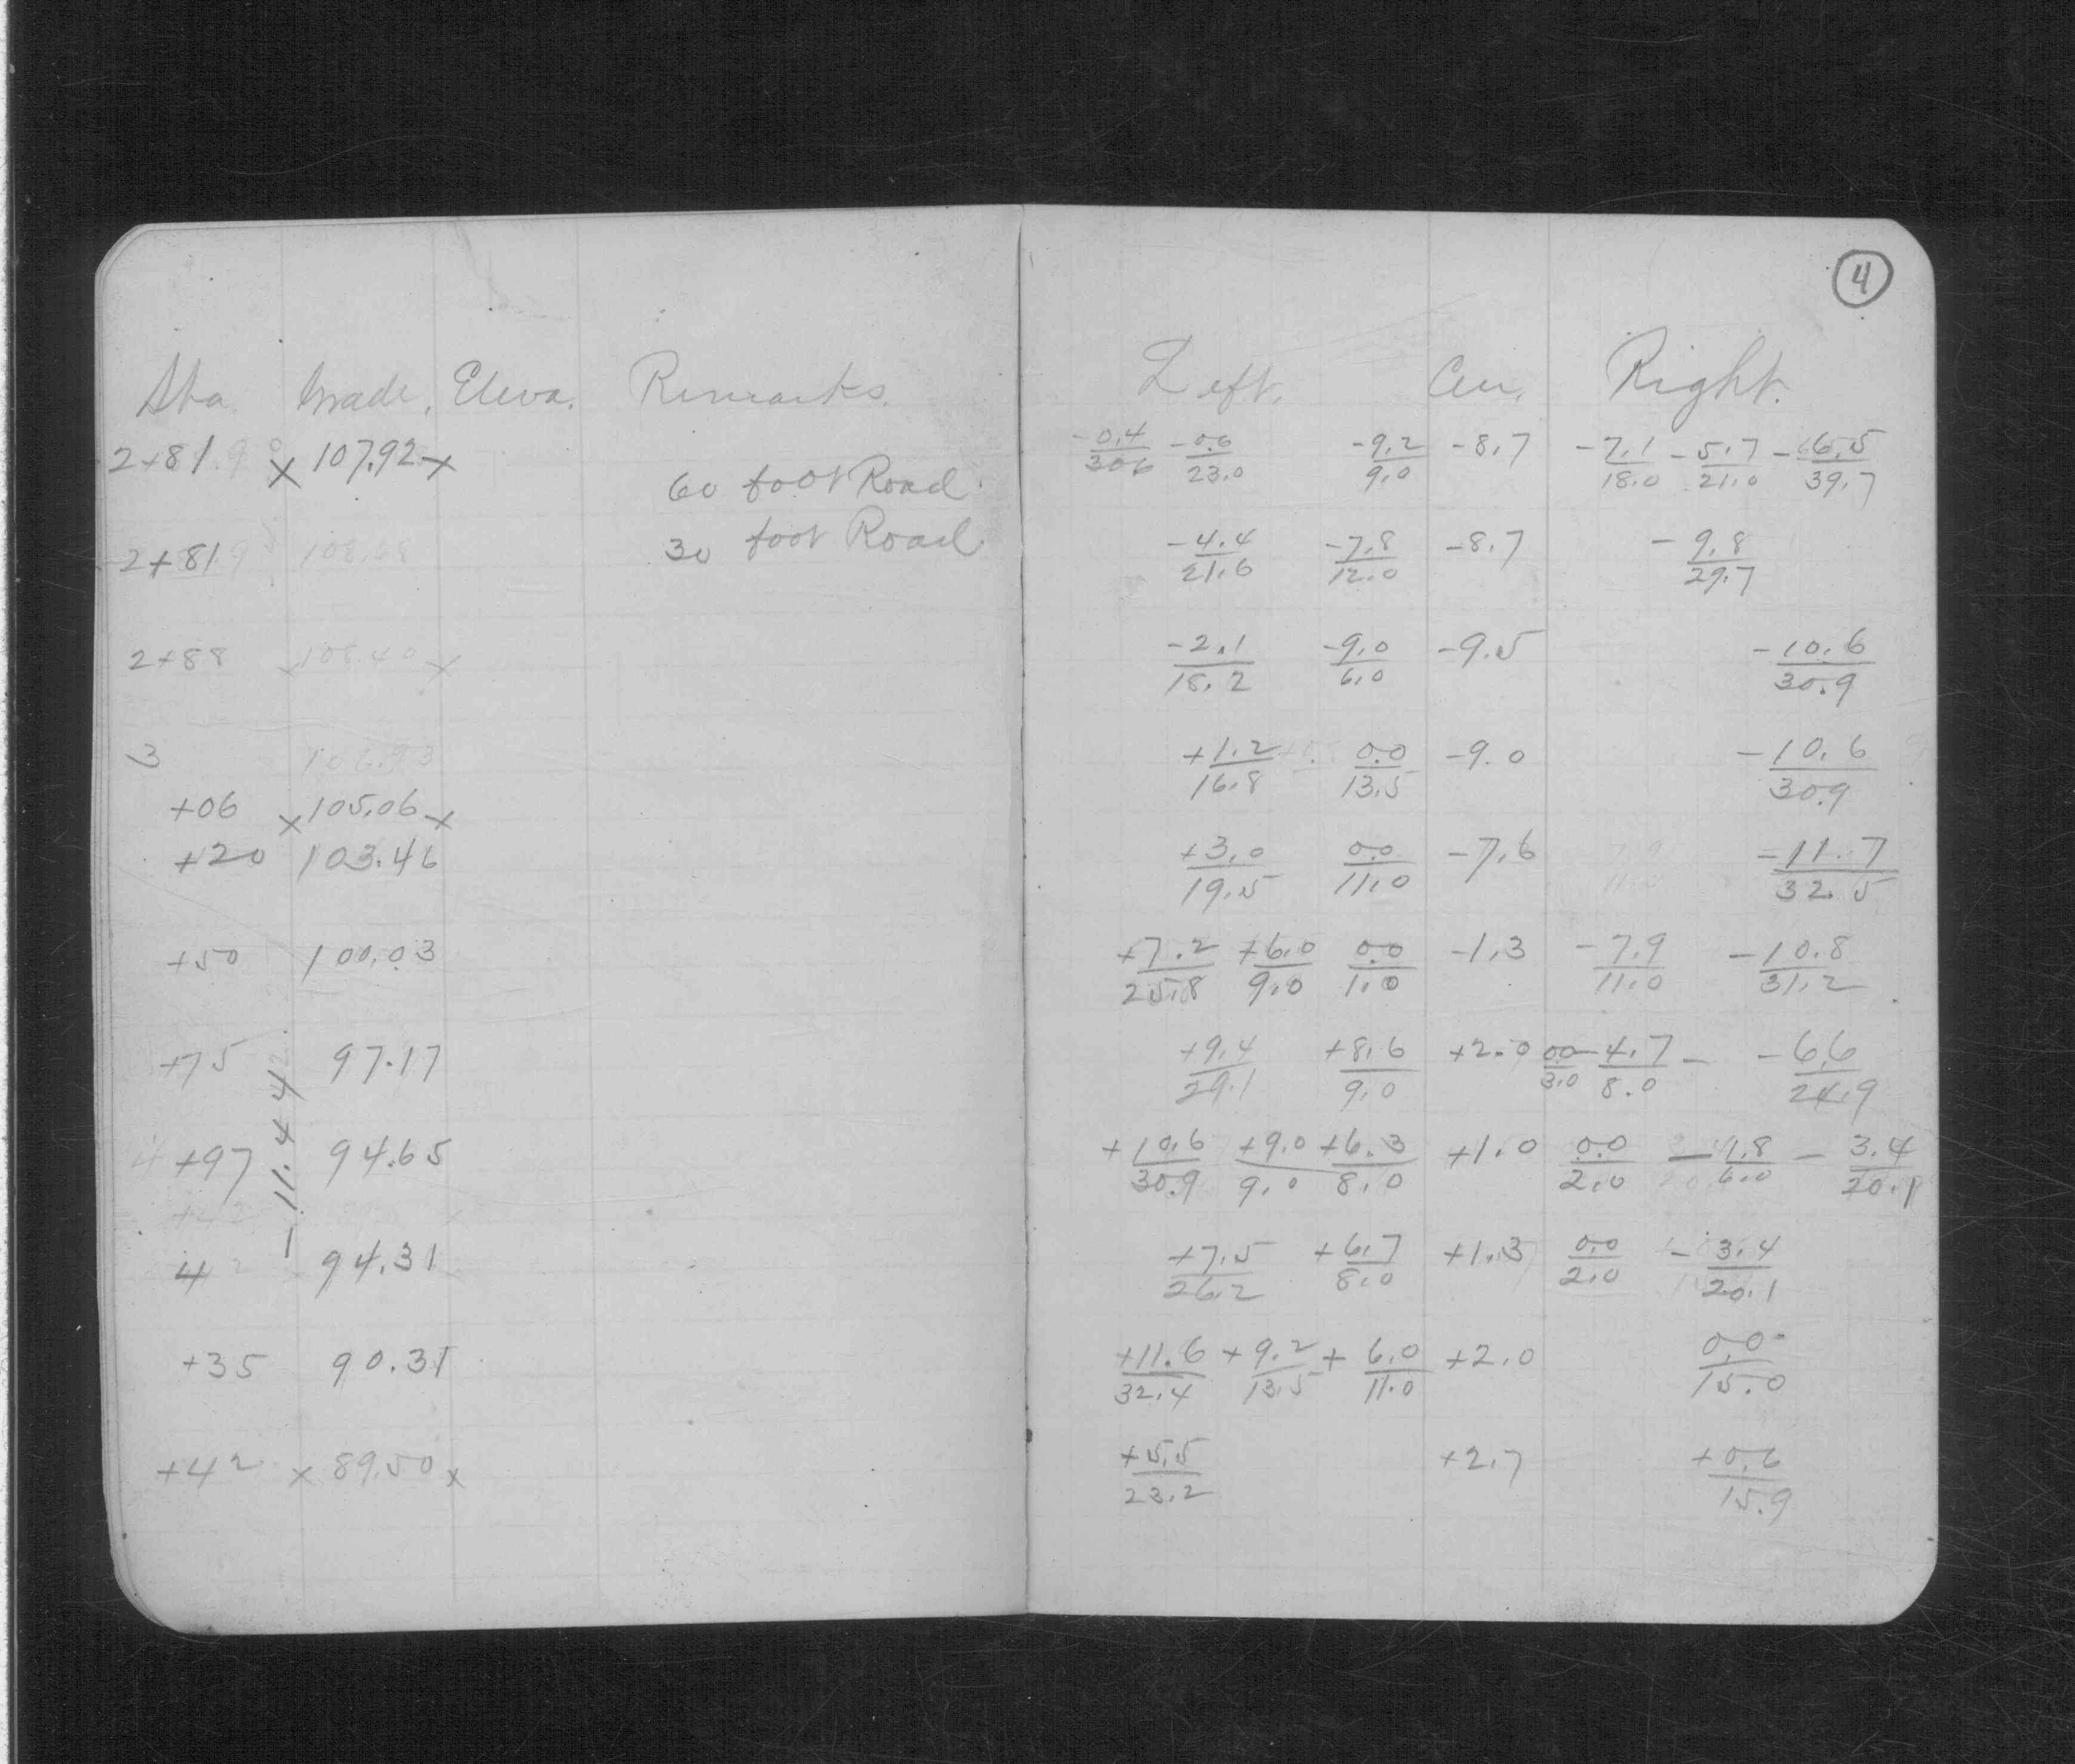 4
Sta. Grade. Eleva. Remarks. Left. Cen. Right.
2+81.9 x 107.92 x 60 foot Road -0.4/30.6 -0.6/23.0 -9.2/9.0 -8.7 -7.1/18.0 -5.7/21.0 -6.5/39.7
2+81.9 108.68 30 foot Road -4.4/21.6 -7.8/12.0 -8.7 -9.8/29.7
2+88 x 108.40 x -2.1/18.2 -9.0/6.0 -9.5 -10.6/30.9
3 106.93 +1.2/16.8 0.0/13.5 -9.0 -10.6/30.9
+06 x 105.06 x
+20 103.46 +3.0/19.5 0.0/11.0 -7.6 -11.7/32.5
+50 100.03 +7.2/25.8 +6.0/9.0 0.0/1.0 -1.3 -7.9/11.0 -10.8/31.2
+75 97.17 +9.4/29.1 +8.6/9.0 +2.0 0.0/3.0 -4.7/8.0 - -6.6/24.9
-11.442
+97 94.65 +10.6/30.9 +9.0/9.0 +6.3/8.0 +1.0 0.0/2.0 -4.8/6.0 -3.4/20.1
4 94.31 +7.5/26.2 +6.7/8.0 +1.3 0.0/2.0 -3.4/20.1
+35 90.31 +11.6/32.4 +9.2/13.5 +6.0/11.0 +2.0 0.0/15.0
+42 x 89.50 x +5.5/23.2 +2.7 +0.6/15.9